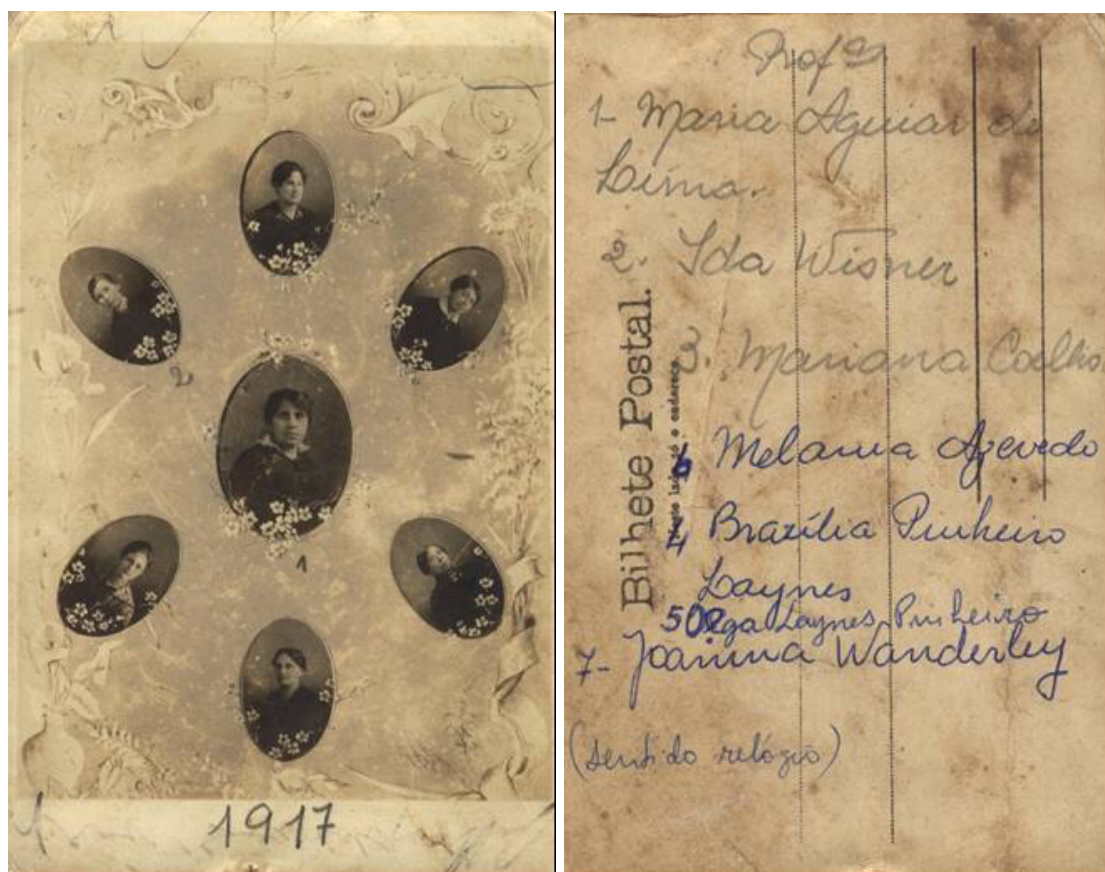 2
1
1917
Prof as
1- Maria Aguiar de
Lima.
2. Ida Wisner
3. Mariana Coelho
6 Melania Azevedo
4 Brazília Pinheiro
Laynes
5 Olga Laynes Pinheiro
7- Joanina Wanderley
(sentido relógio)
Bilhete Postal.